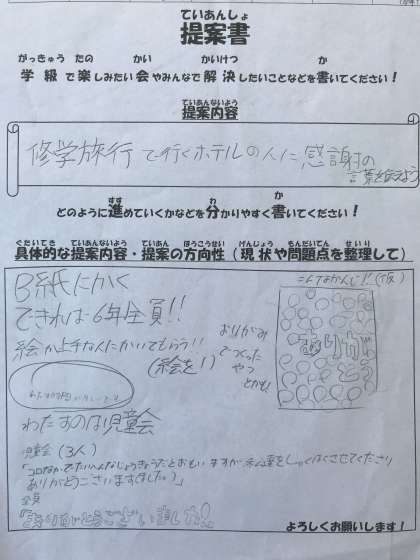 ていあんしょ
提案書
がっきゅう たの かい かいけつ か
学級で楽しみたい会やみんなで解決したいことなどを書いてください!
ていあんないよう
提案内容
修学旅行で行くホテルの人に感謝の
言葉を伝えよう
すす わ か
どのように進めていくかなどを分かりやすく書いてください!
ぐたいてき ていあんないよう ていあん ほうこうせい げんじょう もんだいてん せいり
具体的な提案内容・提案の方向性(現状や問題点を整理して)
B紙にかく
できれば6年全員!!
絵が上手な人にかいてもらう!!
(絵を!)
おりがみ
でつくった
やつ
とかも!
こんなかんじ!!(仮)
ありが
とう
わたすのは児童会
児童会(3人)
「コロナかでたいへんなじょうきょうだとおもいますが私達をしゅくはくさせてくださり
ありがとうございます(ました。)」
全員
「ありがとうございました!!
よろしくお願いします!